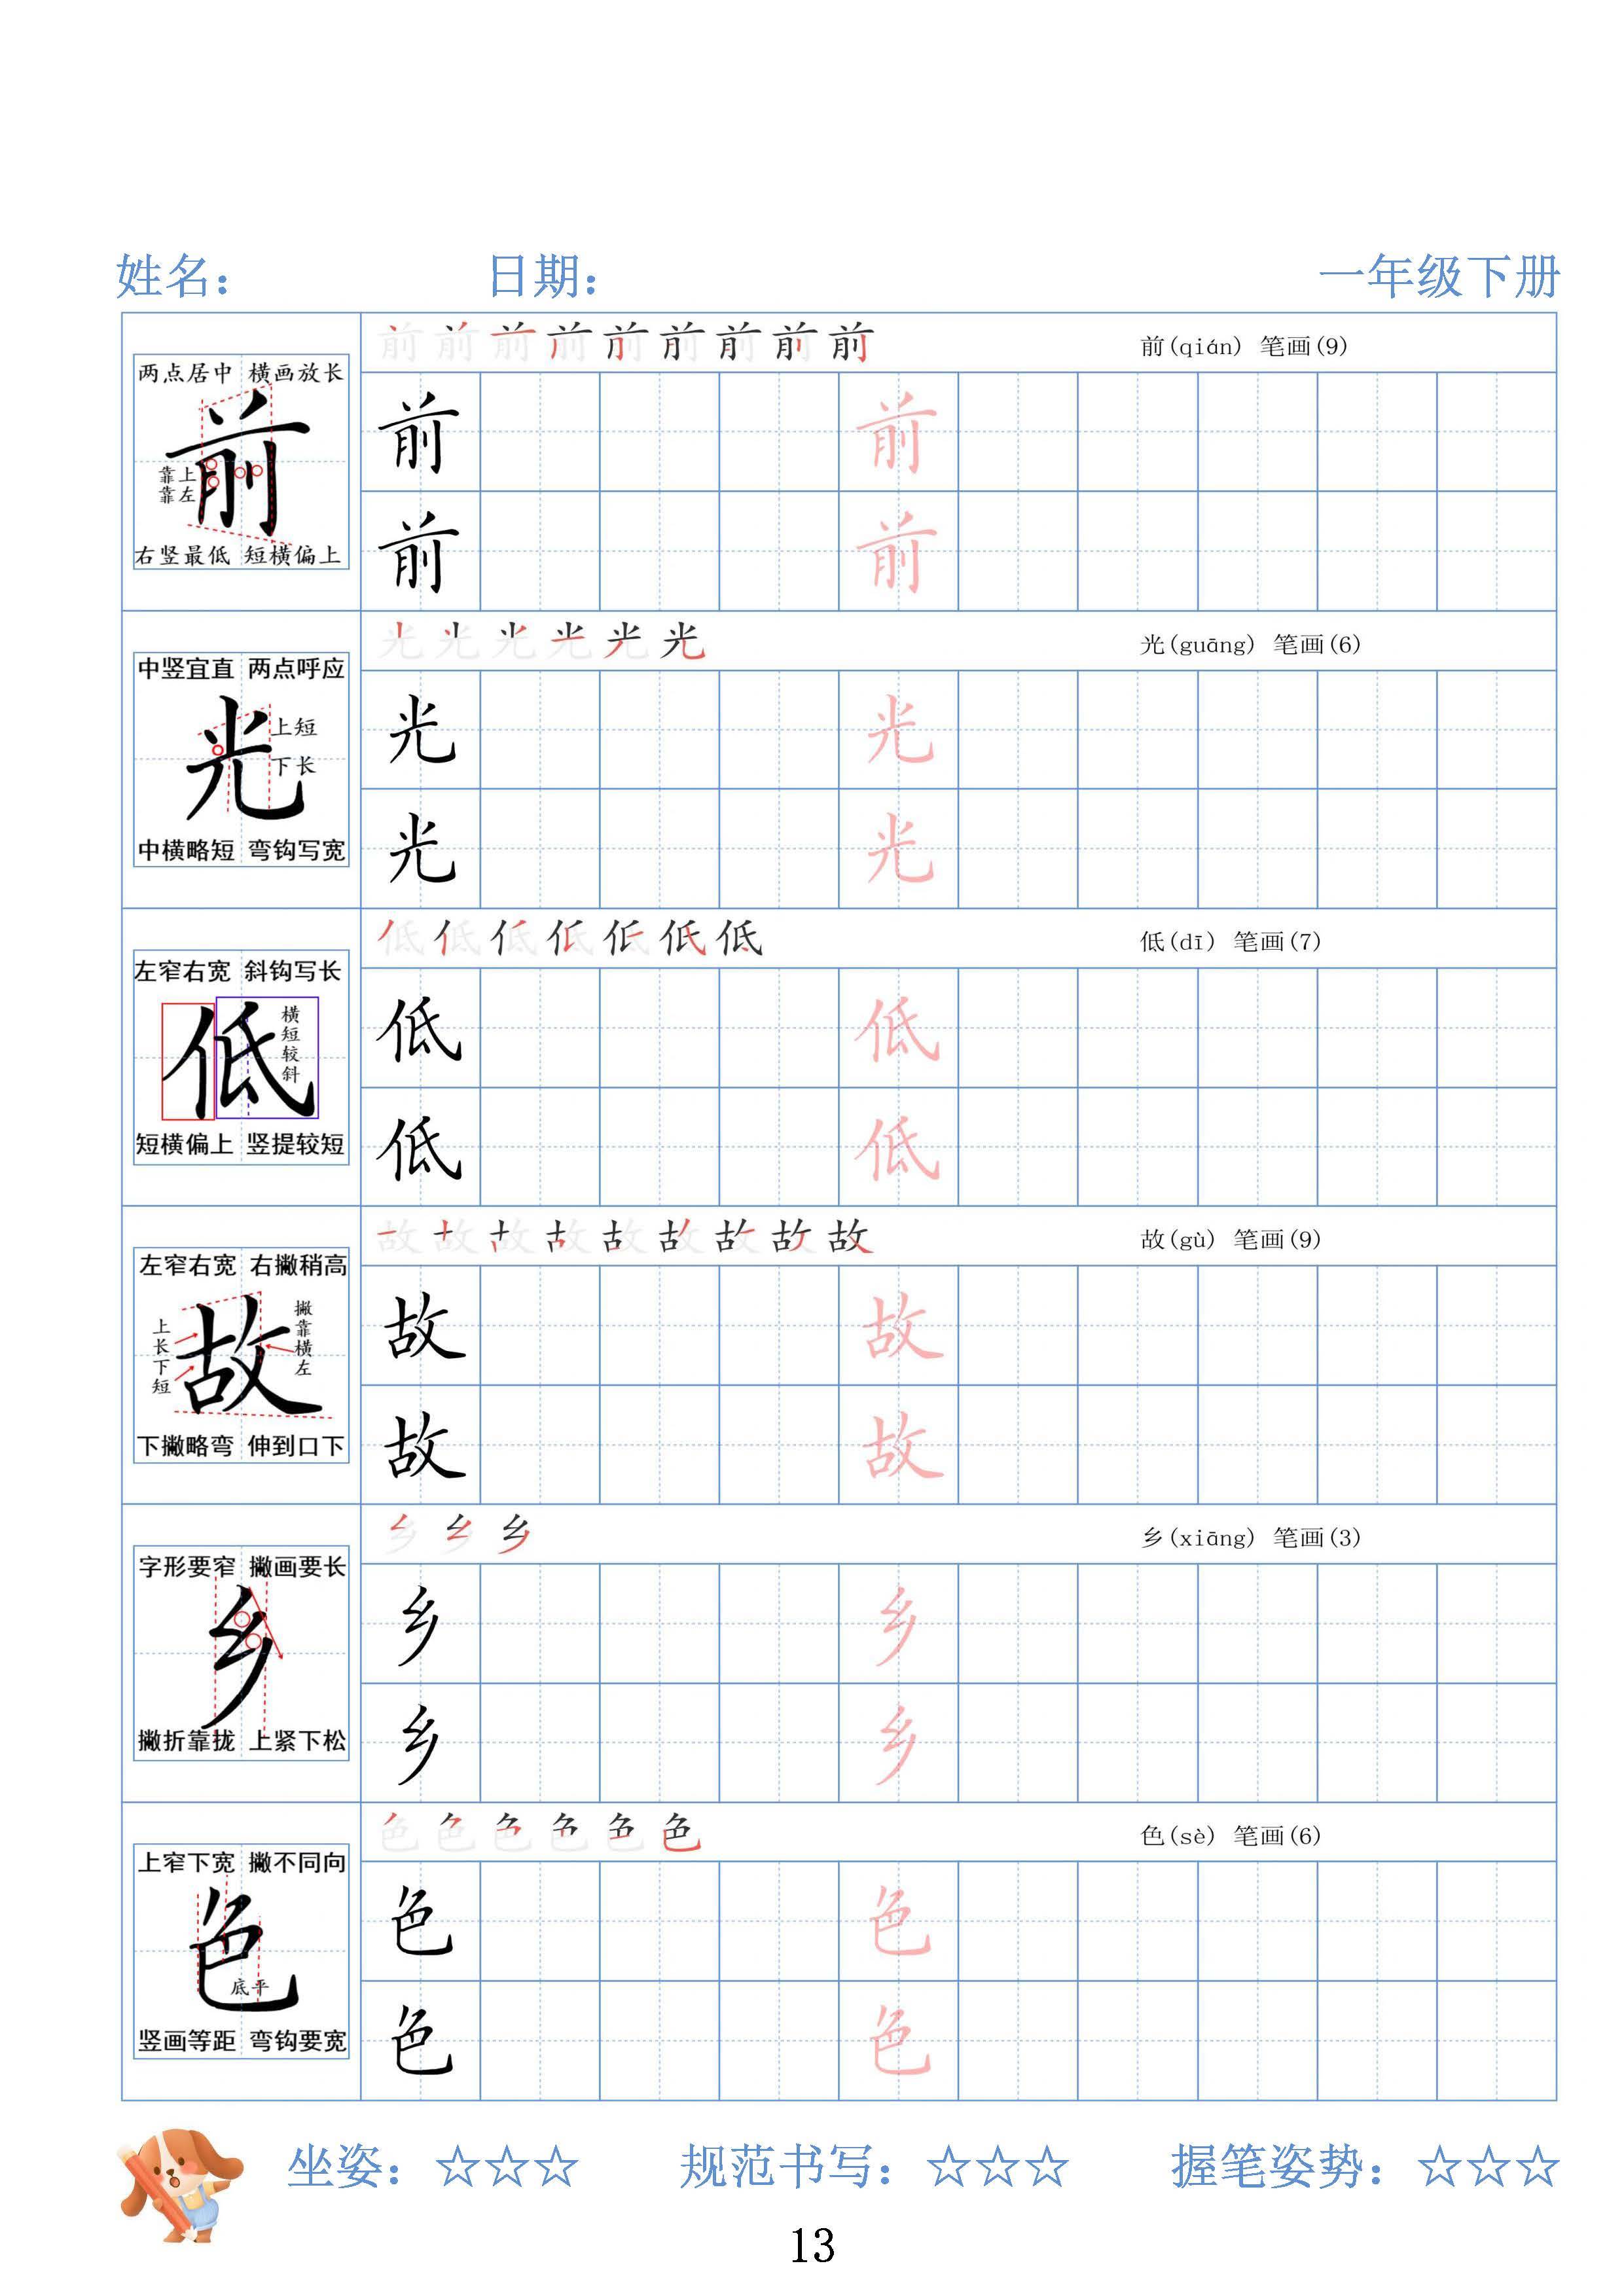 姓名： 日期： 一年级下册
前 前 前 前 前 前 前 前 前 前(qián) 笔画(9)
两点居中 横画放长
前
靠上
靠左
右竖最低 短横偏上
前 前
前 前
光 光 光 光 光 光 光(guāng) 笔画(6)
中竖宜直 两点呼应
光
上短
下长
中横略短 弯钩写宽
光 光
光 光
低 低 低 低 低 低 低 低(dī) 笔画(7)
左窄右宽 斜钩写长
低
横短较斜
短横偏上 竖提较短
低 低
低 低
故 故 故 故 故 故 故 故 故 故(gù) 笔画(9)
左窄右宽 右撇稍高
故
上长下短
撇靠横左
下撇略弯 伸到口下
故 故
故 故
乡 乡 乡 乡(xiāng) 笔画(3)
字形要窄 撇画要长
乡
撇折靠拢 上紧下松
乡 乡
乡 乡
色 色 色 色 色 色 色(sè) 笔画(6)
上窄下宽 撇不同向
色
底平
竖画等距 弯钩要宽
色 色
色 色
坐姿：☆☆☆ 规范书写：☆☆☆ 握笔姿势：☆☆☆
13